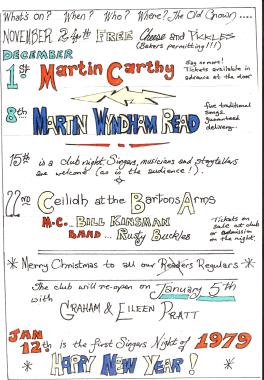 What's on? When? Who? Where? The Old Crown....
NOVEMBER 24th FREE Cheese and PICKLES
(Bakers permitting!!!)
DECEMBER
1st Martin Carthy
Say no more!
Tickets available in
advance at the door
8th MARTIN WYNDHAM READ
fine traditional
songs,
guaranteed
delivery..
15th is a club night. Singers, musicians and storytellers
are welcome (as is the audience!).
22nd Ceilidh at the Bartons Arms
M.C.. BILL KINSMAN
BAND... Rusty Buckles
Tickets on
sale at club
or admission
on the night.
Merry Christmas to all our Readers Regulars
The club will re-open on January 5th
with GRAHAM & EILEEN PRATT
JAN 12th is the first Singers Night of 1979
HAPPY NEW YEAR!